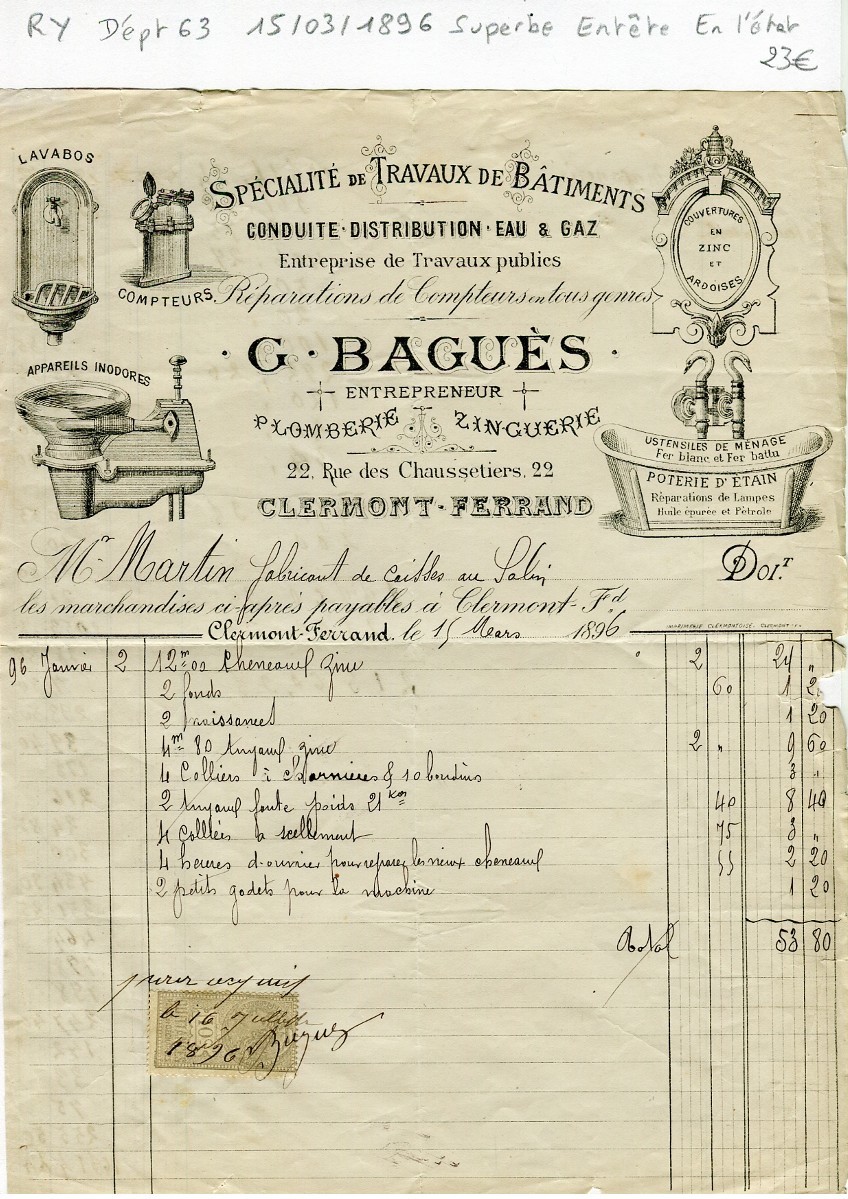 RY Dépt 63 15/03/1896 Superbe Entête En l'état
23€
LAVABOS
SPÉCIALITÉ DE TRAVAUX DE BÂTIMENTS
CONDUITE · DISTRIBUTION · EAU & GAZ
Entreprise de Travaux publics
COMPTEURS.
Réparations de Compteurs en tous genres
COUVERTURES
EN
ZINC
ET
ARDOISES
· G · BAGUÈS ·
APPAREILS INODORES
ENTREPRENEUR
PLOMBERIE ZINGUERIE
22, Rue des Chaussetiers, 22
CLERMONT-FERRAND
USTENSILES DE MÉNAGE
Fer blanc et Fer battu
POTERIE D'ÉTAIN
Réparations de Lampes
Huile épurée et Pétrole
Mr Martin fabricant de caisses au Salin DOIT
les marchandises ci-après payables à Clermont-Fd
IMPRIMERIE CLERMONTOISE. CLERMONT
Clermont-Ferrand, le 15 Mars 1896
96 Janvier 2 12m00 Cheneaux zinc 2 24 "
2 fonds 60 1 2
2 naissances 1 20
4m 80 tuyaux zinc 2 " 9 60
4 Colliers à charnières & 10 boudins 3 "
2 tuyaux fonte poids 21 Kos 40 8 40
4 colliers à scellement 75 3 "
4 heures d'ouvrier pour reparer les vieux cheneaux 55 2 20
2 petits godets pour la machine 1 20
Total 53 80
pour acquis
le 16 Juillet
1896 Baguès